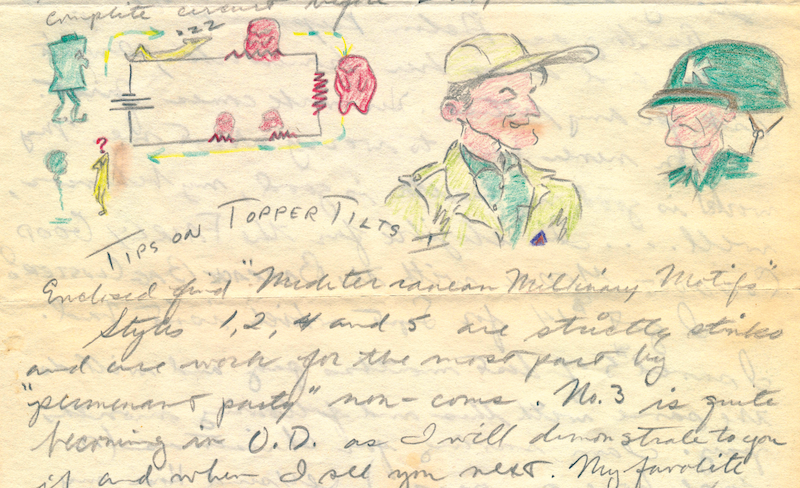 complete circuit
zzz
?
K
TIPS ON TOPPER TILTS I
Enclosed find "Mediterranean Millinary Motifs"
Styles 1, 2, 4 and 5 are strictly stinko
and are work for the most part by
"permenant party" non-coms. No. 3 is quite
becoming in O.D. as I will demonstrate to you
if and when I see you next. My favorite